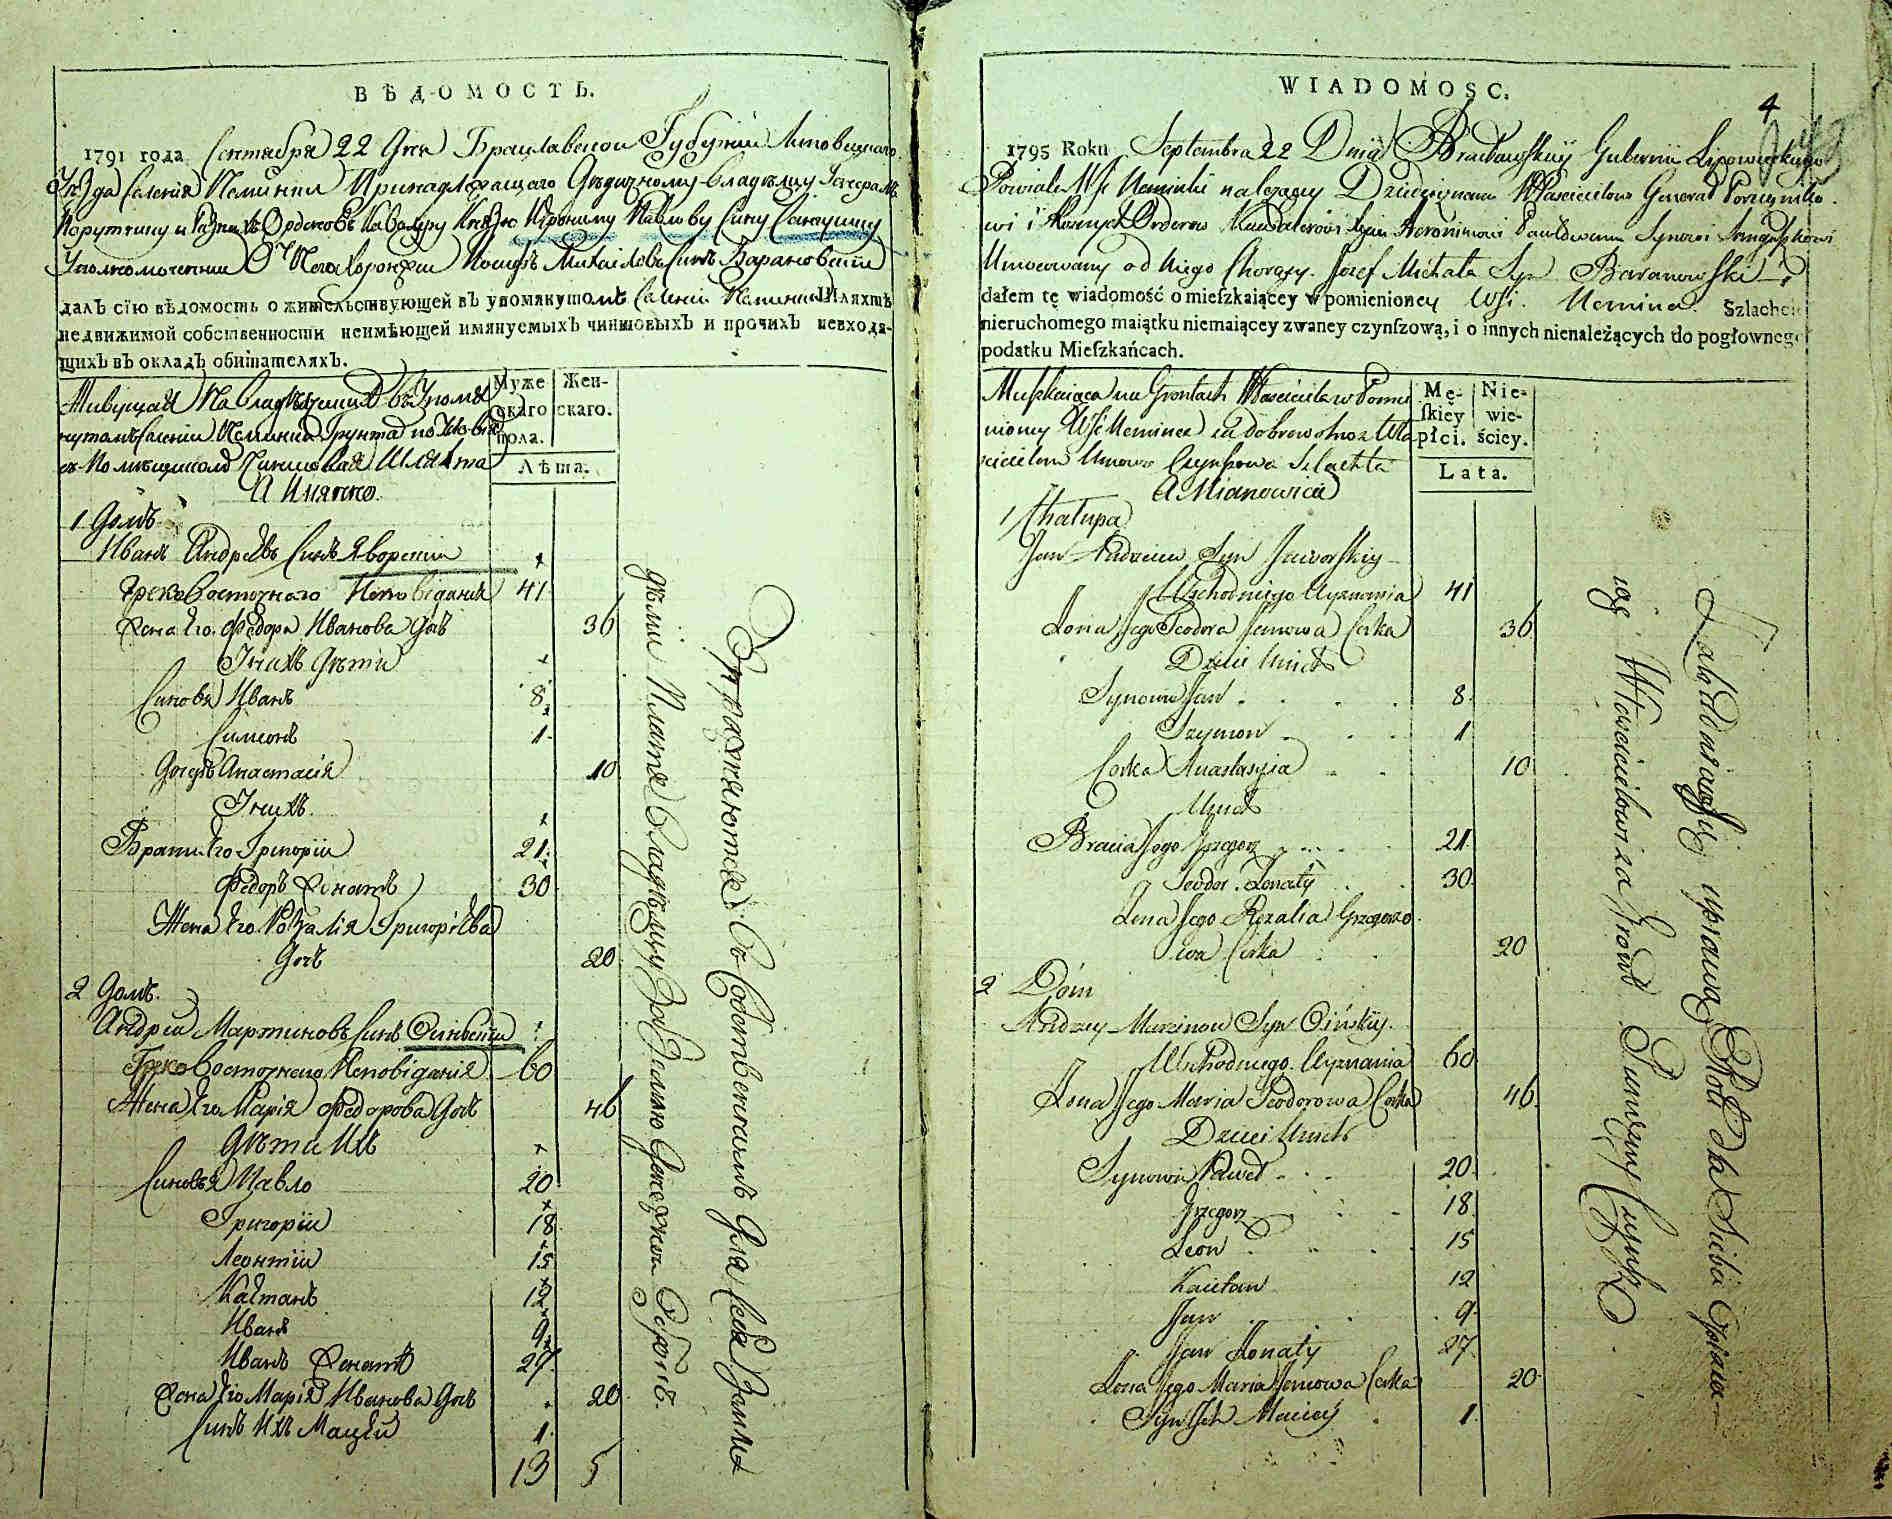 ВѢДОМОСТЬ.
1791 года Сентября 22 Дня Браславской Губернїи Липовецкаго
Уезда Селенїя Неминки Принадлежащаго Дѣдичному Владѣлцу Генералъ
Порутчику и Разныхъ Орденовъ Кавалеру Князю Иерониму Павлову Сину Сангушку
Уполномоченни Отъ Него Хоронжи Иосифъ Михайловъ Синъ Барановскїи
далъ сїю вѣдомость о жительствующей въ упомянутомъ Селенїи Неминки Шляхтѣ
недвижимой собственности неимѣющей имянуемыхъ чиншовыхъ и прочихъ невходя-
щихъ въ окладъ обитателяхъ.
Живущая На Владѣлческихъ въ Упомя
нутомъ Селенїи Неминки Грунтах по Условїю
съ Помещиком Чиншовая Шляхта
А Имянно.
Муже
скаго
пола.
Жен-
скаго.
Лѣта.
1 Домъ
Иванъ Андреевъ Синъ Яворскїи
Грековосточнаго Исповѣданїя 41
Жена Его Федора Иванова Дочь 36
У них Дѣти
Синовя Иванъ 8
Симеонъ 1
Дочерь Анастасїя 10
У них
Брати Его Григорїи 21
Федоръ Женатъ 30
Жена Его Розалїя Григорїева
Дочь 20
2 Домъ
Андреи Мартиновъ Синъ Осинскїи
Грековосточнаго Исповѣданїя 60
Жена Его Марїя Федорова Дочь 46
Дѣти Ихъ
Синовя Павло 20
Григорїи 18
Леонтїи 15
Каетанъ 12
Иванъ 9
Иванъ Женатъ 27
Жена Его Марїя Иванова Дочь 20
Синъ Ихъ Мацѣи 1
13 5
Упражняются Съ Собственнымъ Для Себя Заимо
дѣлїи Платя Владѣлцу За Землю Денежнои Оброкъ.
WIADOMOSC.
4
1795 Roku Septembra 22 Dnia Bracławskiy Gubernii Lipowieckiego
Powiatu Wsi Neminki należący Dziedzicznemu Włascicielowi Generał Poruczniko
wi i Roznych Orderow Kawalerowi Xięciu Heronimowi Pawłowemu Synowi Sanguszkowi
Umocowany od Niego Chorąży Jozef Michała Syn Baranowski
dałem tę wiadomość o mieſzkaiącey w pomienioney Wsi Nemince Szlachcie
nieruchomego maiątku niemaiącey zwaney czynſzową, i o innych nienależących do pogłownego
podatku Mieſzkańcach.
Mieszkaiąca na Gruntach Własciciela w Pomie
nioney Wsi Nemince za dobrowolno z Wła
scicielem Umową Czynszowa Szlachta
A Mianowicie
Mę-
ſkiey
płci.
Nie-
wie-
ściey.
Lata.
1 Chałupa
Jan Andrzeiew Syn Jaworskiy
Wschodniego Wyznania 41
Zona Jego Teodora Janowa Corka 36
Dzieci Unich
Synowie Jan 8
Szymon 1
Corka Anastasyia 10
Unich
Bracia Jego Grzegorz 21
Teodor Zonaty 30
Zona Jego Rozalia Grzegorzo
wa Corka 20
2 Dóm
Andrzey Marcinow Syn Osińskiy
Wschodniego Wyznania 60
Zona Jego Maria Teodorowa Corka 46
Dzieci Unich
Synowie Paweł 20
Grzegorz 18
Leon 15
Kaietan 12
Jan 9
Jan Zonaty 27
Zona Jego Maria Janowa Corka 20
Syn Ich Maciey 1
uprawą Roli Dla Siebie
iąc Włascicielowi za Gront Pieniężny Czynsz